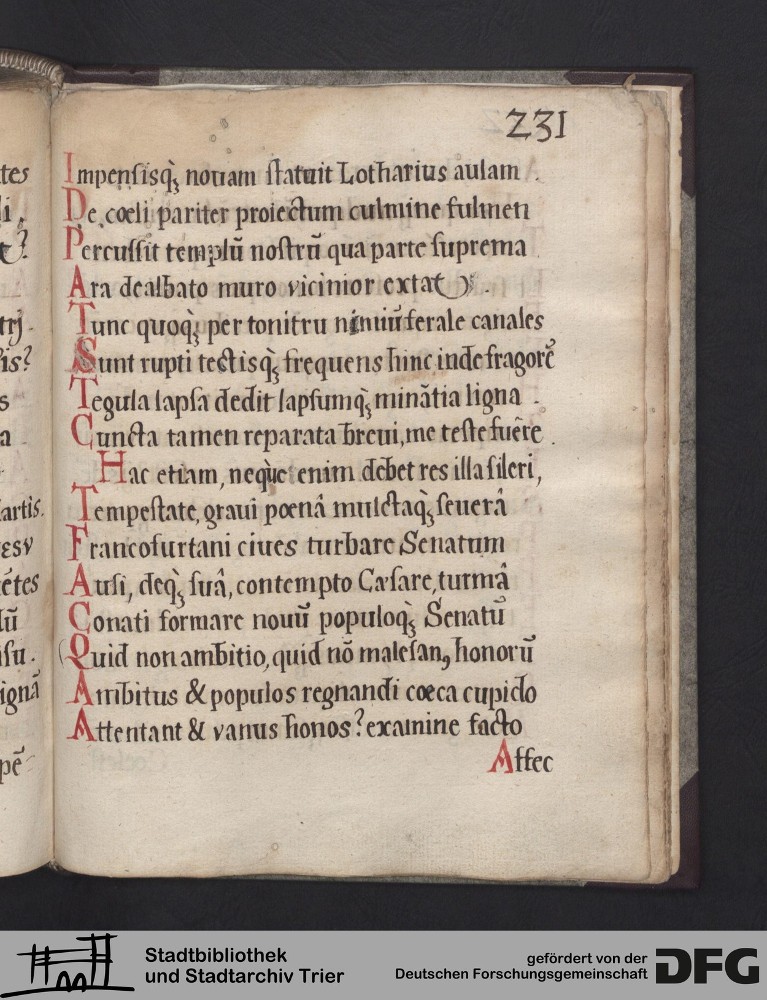 tes
li,
t?
trj.
is?
s
a
artis.
esv
ẽtes
lũ
ſu.
ignã
pẽ
231
Impenſisq̀ꝫ nouam ſtatuit Lotharius aulam .
De cœli pariter proiectum culmine fulmen
Percuſſit templũ noſtrũ qua parte ſuprema
Ara dealbato muro vicinior extat ) .
Tunc quoq̀ꝫ per tonitru nimiũ ferale canales
Sunt rupti tectisq̀ꝫ frequens hinc inde fragorẽ
Tegula lapſa dedit lapſumq̀ꝫ minãtia ligna .
Cuncta tamen reparata breui, me teſte fuêre .
Hac etiam, neque enim debet res illa ſileri,
Tempeſtate, graui pœnâ mulctaq̀ꝫ ſeuerâ
Francofurtani ciues turbare Senatum
Auſi, deq̀ꝫ ſuâ, contempto Cæſare, turmâ
Conati formare nouũ populoq̀ꝫ Senatũ
(Quid non ambitio, quid nõ maleſanꝯ honorũ
Ambitus & populos regnandi cœca cupido
Attentant & vanus honos? examine facto
Affec
Stadtbibliothek
und Stadtarchiv Trier
gefördert von der
Deutschen Forschungsgemeinschaft
DFG